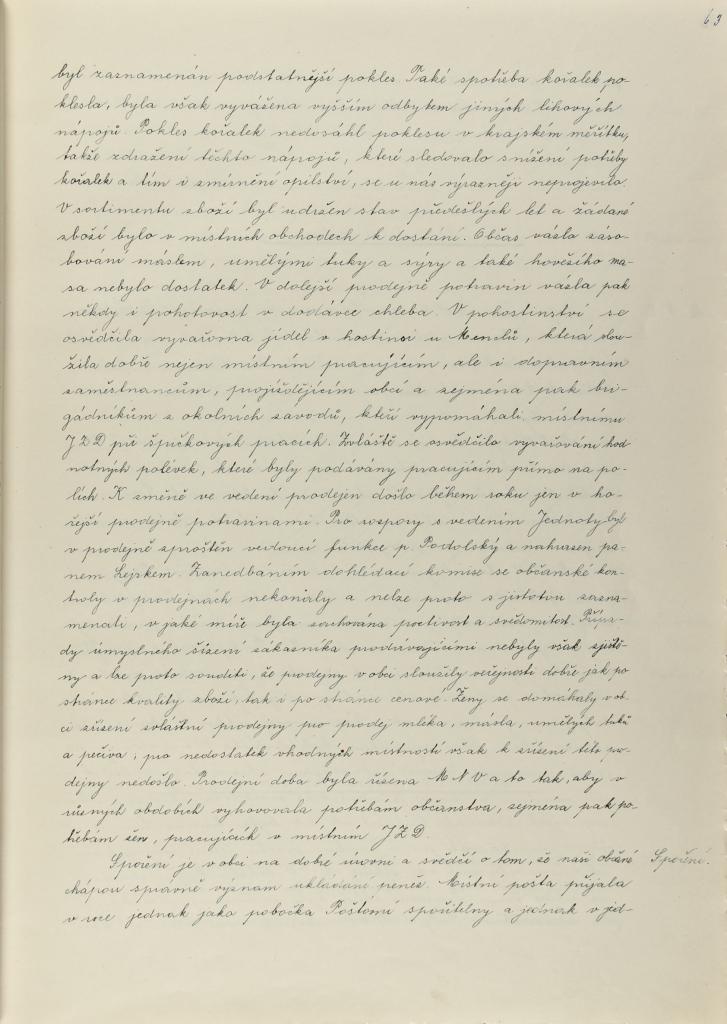 63
byl zaznamenán podstatnější pokles. Také spotřeba kořalek po-
klesla, byla však vyvážena vyšším odbytem jiných lihových
nápojů. Pokles kořalek nedosáhl poklesu v krajském měřítku,
takže zdražení těchto nápojů, které sledovalo snížení potřeby
kořalek a tím i zmírnění opilství, se u nás výrazněji neprojevilo.
V sortimentu zboží byl udržen stav předešlých let a žádané
zboží bylo v místních obchodech k dostání. Občas vázlo záso-
bování máslem, umělými tuky a sýry a také hovězího ma-
sa nebylo dostatek. V dolejší prodejně potravin vázla pak
někdy i pohotovost v dodávce chleba. V pohostinství se
osvědčila vyvařovna jídel v hostinci u Menclů, která slou-
žila dobře nejen místním pracujícím, ale i dopravním
zaměstnancům, projíždějícím obcí a zejména pak bri-
gádníkům z okolních závodů, kteří vypomáhali místnímu
JZD při špičkových pracích. Zvláště se osvědčilo vyvařování hod-
notných polévek, které byly podávány pracujícím přímo na po-
lích. K změně ve vedení prodejen došlo během roku jen v ho-
řejší prodejně potravinami. Pro rozpory s vedením Jednoty byl
v prodejně zproštěn vedoucí funkce p. Podolský a nahrazen pa-
nem Lejskem. Zanedbáním dohlédací komise se občanské kon-
troly v prodejnách nekonaly a nelze proto s jistotou zazna-
menati, v jaké míře byla zachována poctivost a svědomitost. Přípa-
dy úmyslného šizení zákazníka prodávajícími nebyly však zjiště-
ny a lze proto souditi, že prodejny v obci sloužily veřejnosti dobře jak po
stránce kvality zboží, tak i po stránce cenové. Ženy se domáhaly v ob-
ci zřízení zvláštní prodejny pro prodej mléka, másla, umělých tuků
a pečiva, pro nedostatek vhodných místností však k zřízení této pro-
dejny nedošlo. Prodejní doba byla řízena MNV a to tak, aby v
různých obdobích vyhovovala potřebám občanstva, zejména pak po-
třebám žen, pracujících v místním JZD.
Spoření je v obci na dobré úrovni a svědčí o tom, že naši občané Spoření.
chápou správně význam ukládání peněz. Místní pošta přijala
v roce jednak jako pobočka Poštovní spořitelny a jednak v jed-